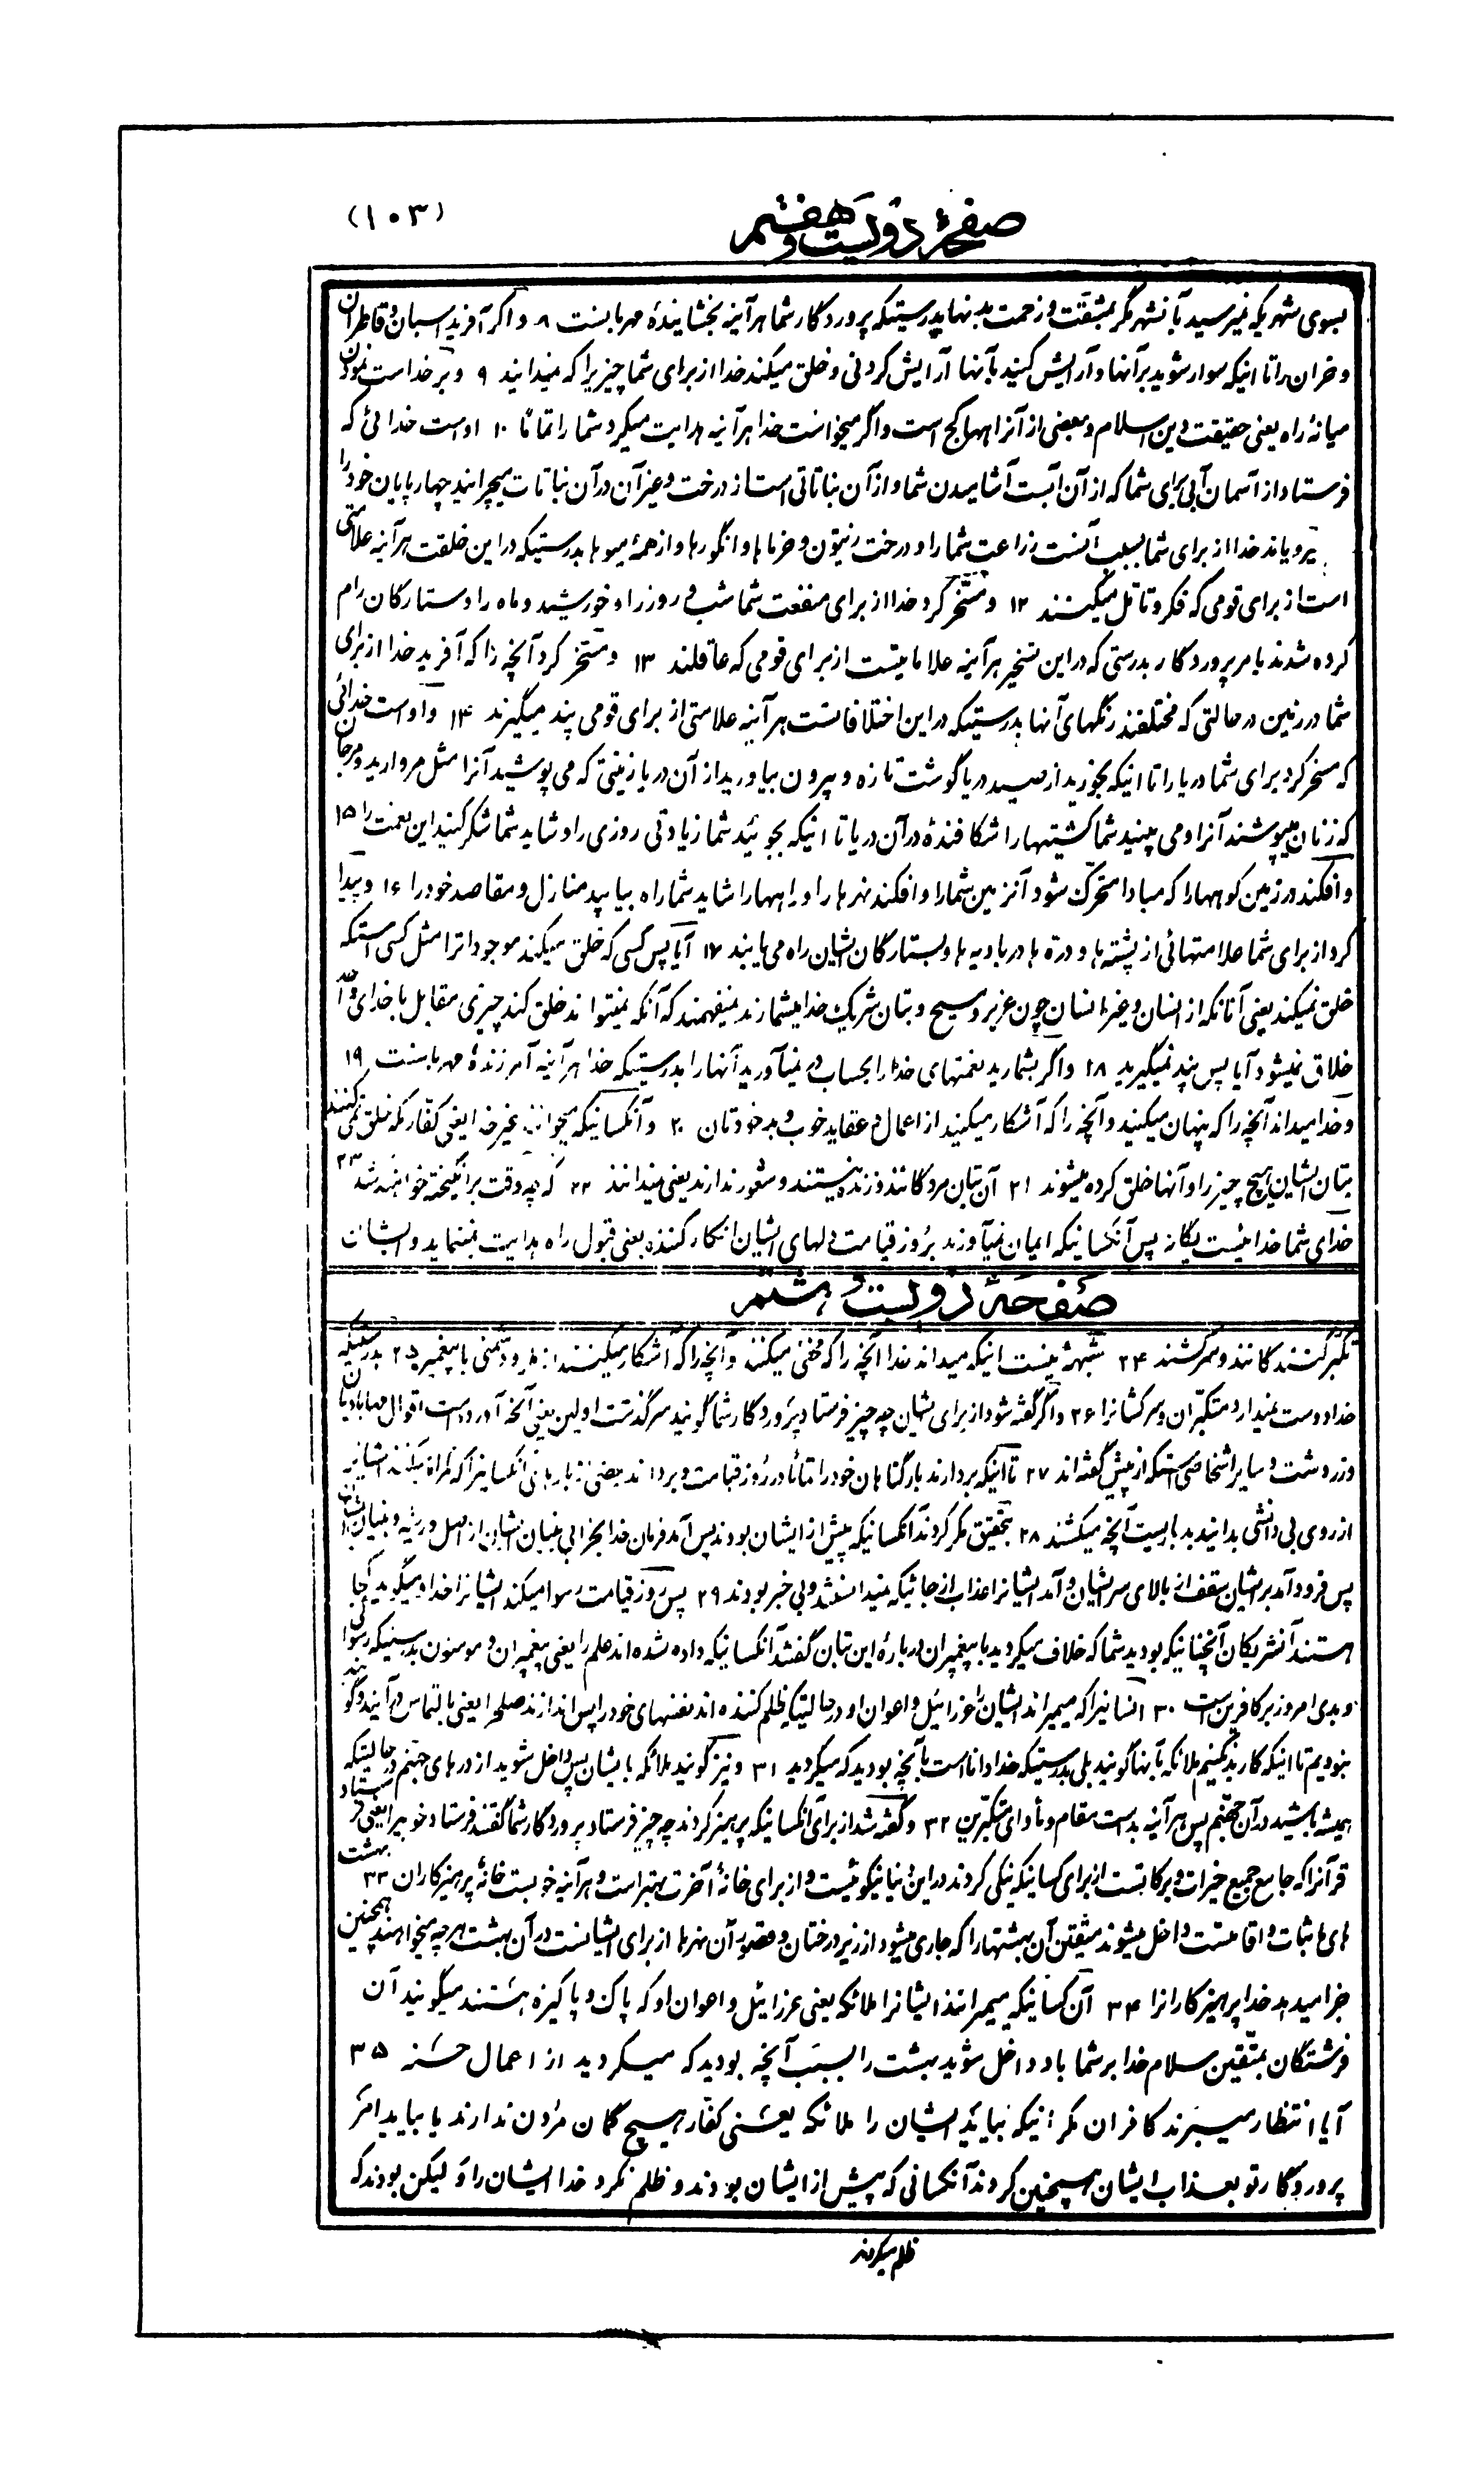 (۱۰۳)
صفحهٔ دویست و هفتم
بسوی شهریکه نمیرسید بآنشهر مگر بمشقت و زحمت بدنها بدرستیکه پروردگار شما هرآینه بخشایندهٔ مهربانست ۸ و اگر آفرید اسبان و قاطران
و خران را تا اینکه سوار شوید بر آنها و آرایش کنید بآنها آرایش کردنی و خلق میکند خدا از برای شما چیزیرا که نمیدانید ۹ و بر خداست نمودن
میانهٔ راه یعنی حقیقت دین اسلام و بعضی از آنراهها کج است و اگر میخواست خدا هرآینه هدایت میکرد شما را تماماً ۱۰ اوست خدائی که
فرستاد از آسمان آبی برای شما که از آن آبست آشامیدن شما و از آن نباتاتی است از درخت و غیر آن در آن نباتات میچرانید چهارپایان خود را
یرویاند خدا از برای شما بسبب آنست زراعت شما را و درخت زیتون و خرماها و انگورها و از همهٔ میوها بدرستیکه در این خلقت هرآینه علامتی
است از برای قومی که فکر و تأمل میکنند ۱۲ و مسخّر کرد خدا از برای منفعت شما شب و روز را و خورشید و ماه را و ستارگان رام
کرده شدند بامر پروردگار بدرستی که در این تسخیر هرآینه علاماتیست از برای قومی که عاقلند ۱۳ و مسخّر کرد آنچه را که آفرید خدا از برای
شما در زمین در حالتی که مختلفند رنگهای آنها بدرستیکه در این اختلافات هرآینه علامتی از برای قومی پند میگیرند ۱۴ و اوست خدائی
که مسخر کرد برای شما دریا را تا اینکه بخورید از صید دریا گوشت تازه و بیرون بیاورید از آن دریا زینتی که می پوشید آنرا مثل مروارید و مرجان
که زنان میپوشند آنرا و می بینید شما کشتیها را شکافندهٔ در آن دریا تا اینکه بجوئید شما زیادتی روزی را و شاید شما شکر کنید این نعمت را ۱۵
و افکند در زمین کوهها را که مبادا متحرّک شود آنزمین شما را و افکند نهرها را و راهها را شاید شما راه بیابید منازل و مقاصد خود را ۱۶ و پیدا
کرد از برای شما علامتهائی از پشته ها و درّه ها در بادیه ها و بستارگان ایشان راه می یابند ۱۷ آیا پس کسی که خلق میکند موجودات را مثل کسی استکه
خلق نمیکند یعنی آنانکه از انسان و غیر انسان چون عزیر و مسیح و بتان شریک خدا میشمارند نمیفهمند که آنکه نمیتواند خلق کند چیزی مقابل با خدای واحد
خلاق نمیشود آیا پس پند نمیگیرید ۱۸ و اگر بشمارید نعمتهای خدا را بحساب در نمیآورید آنها را بدرستیکه خدا هرآینه آمرزندهٔ مهربانست ۱۹
و خدا میداند آنچه را که پنهان میکنید و آنچه را که آشکار میکنید از اعمال و عقاید خوب و بد خودتان ۲۰ و آنکسانیکه میخوانند بغیر خدا یعنی کفّار که خلق نمی کنند
بتان ایشان هیچ چیز را و آنها خلق کرده میشوند ۲۱ آن بتان مردگانند و زنده نیستند و شعور ندارند یعنی نمیدانند ۲۲ که چه وقت برانگیخته خواهند شد ۲۳
خدای شما خدائیست یگانه پس آنکسانیکه ایمان نمیآورند بروز قیامت دلهای ایشان انکار کننده یعنی قبول راه هدایت نمینماید و ایشان
صفحهٔ دویست و هشتم
تکبر کنندگانند و سرکشند ۲۴ شبهه نیست اینکه میداند خدا آنچه را که مخفی میکنند و آنچه را که آشکار میکنند از و دشمنی با پیغمبر ۲۵ بدرستیکه
خدا دوست نمیدارد متکبّران و سرکشانرا ۲۶ و اگر گفته شود از برای ایشان چه چیز فرستاد پروردگار شما گویند سرگذشت اولین یعنی آنچه آورده است اقوال مهابادیان
و زردشت و سایر اشخاصی استکه از پیش گفته اند ۲۷ تا اینکه بردارند بار گناهان خود را تماماً در روز قیامت و بردارند بعضی از بارهای آنکسانیرا که گمراه میکنند ایشانرا
از روی بی دانشی بدانید بد باریست آنچه میکشند ۲۸ بتحقیق مکر کردند آنکسانیکه پیش از ایشان بودند پس آمد فرمان خدا بخرابی بنیان ایشان از اصل و ریشه و بنیان
پس فرود آمد بر ایشان سقف از بالای سر ایشان و آمد ایشانرا عذاب از جائیکه نمیدانستند و بی خبر بودند ۲۹ پس روز قیامت رسوا میکند ایشانرا خدا و میگوید کجا
هستند آنشریکان آنچنانیکه بودید شما که خلاف میکردید با پیغمبران درباره این بتان گفتند آنکسانیکه داده شده اند علم را یعنی پیغمبران و مومنون بدرستیکه رسوائی
و بدی امروز بر کافرین است ۳۰ آنسانیرا که میمیراند ایشان را عزرائیل و اعوان او در حالتیکه ظلم کننده اند نفسهای خود را پس اندازند صلح را یعنی بالتماس در آیند و گویند
نبودیم تا اینکه کار بد بکنیم ملائکه بآنها گویند بلی بدرستیکه خدا دانا است بآنچه بودید که میکردید ۳۱ و نیز گویند ملائکه بایشان پس داخل شوید از درهای جهنّم در حالتیکه
همیشه باشید در آن جهنّم پس هرآینه بد است مقام و مأوای متکبّرین ۳۲ و گفته شد از برای آنکسانیکه پرهیز کردند چه چیز فرستاد پروردگار شما گفتند فرستاد خوبیرا یعنی فرستاد
قرآنرا که جامع جمیع خیرات و برکاتست از برای کسانیکه نیکی کردند در این دنیا نیکوئیست و از برای خانهٔ آخرت بهتر است و هرآینه خوبست خانهٔ پرهیزکاران ۳۳ بهشت
های ثبات و اقامتست داخل میشوند متّقین آن بهشتها را که جاری میشود از زیر درختان و قصور آن نهرها از برای ایشانست در آن بهشت هرچه میخواهند همچنین
جزا میدهد خدا پرهیزکارانرا ۳۴ آن کسانیکه میمیرانند ایشانرا ملائکه یعنی عزرائیل و اعوان او که پاک و پاکیزه هستند میگویند آن
فرشتگان بمتّقین سلام خدا بر شما باد داخل شوید بهشت را بسبب آنچه بودید که میکردید از اعمال حسنه ۳۵
آیا انتظار میبرند کافران مگر اینکه بیاید ایشان را ملائکه یعنی کفّار هیچ گمان مردن ندارند یا بیاید امر
پروردگار تو بعذاب ایشان همچنین کردند آنکسانی که پیش از ایشان بودند و ظلم نکرد خدا ایشان را و لیکن بودند که
ظلم میکردند